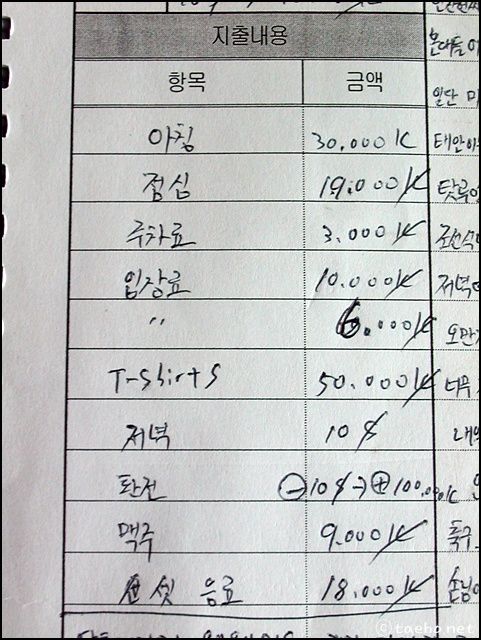 지출내용
항목 금액
아침 30.000K
점심 19.000K
주차료 3.000K
입장료 10.000K
〃 6.000K
T-shirts 50.000K
저녁 10$
환전 ⊖10$→⊕100.000K
맥주 9.000K
선셋 음료 18.000K
일단
저녁
ⓒtaebo.net